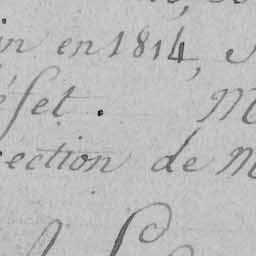 in en 1814,
éfet. M
ection de M